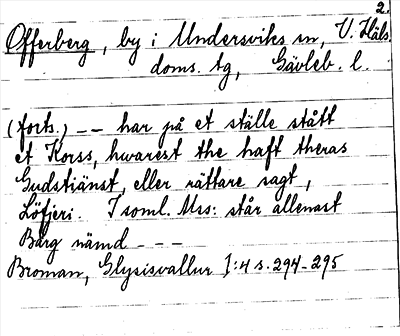 2.
Offerberg, by i Undersviks sn, V. Häls.
doms. tg, Gävleb. l.
(forts.) -- har på et ställe stått
et Korss, hwarest the haft theras
Gudstiänst, eller rättare sagt,
Löfjeri. I soml. Mss: står allenast
Bärg nämd ---
Broman, Glysisvallur I:4 s. 294-295